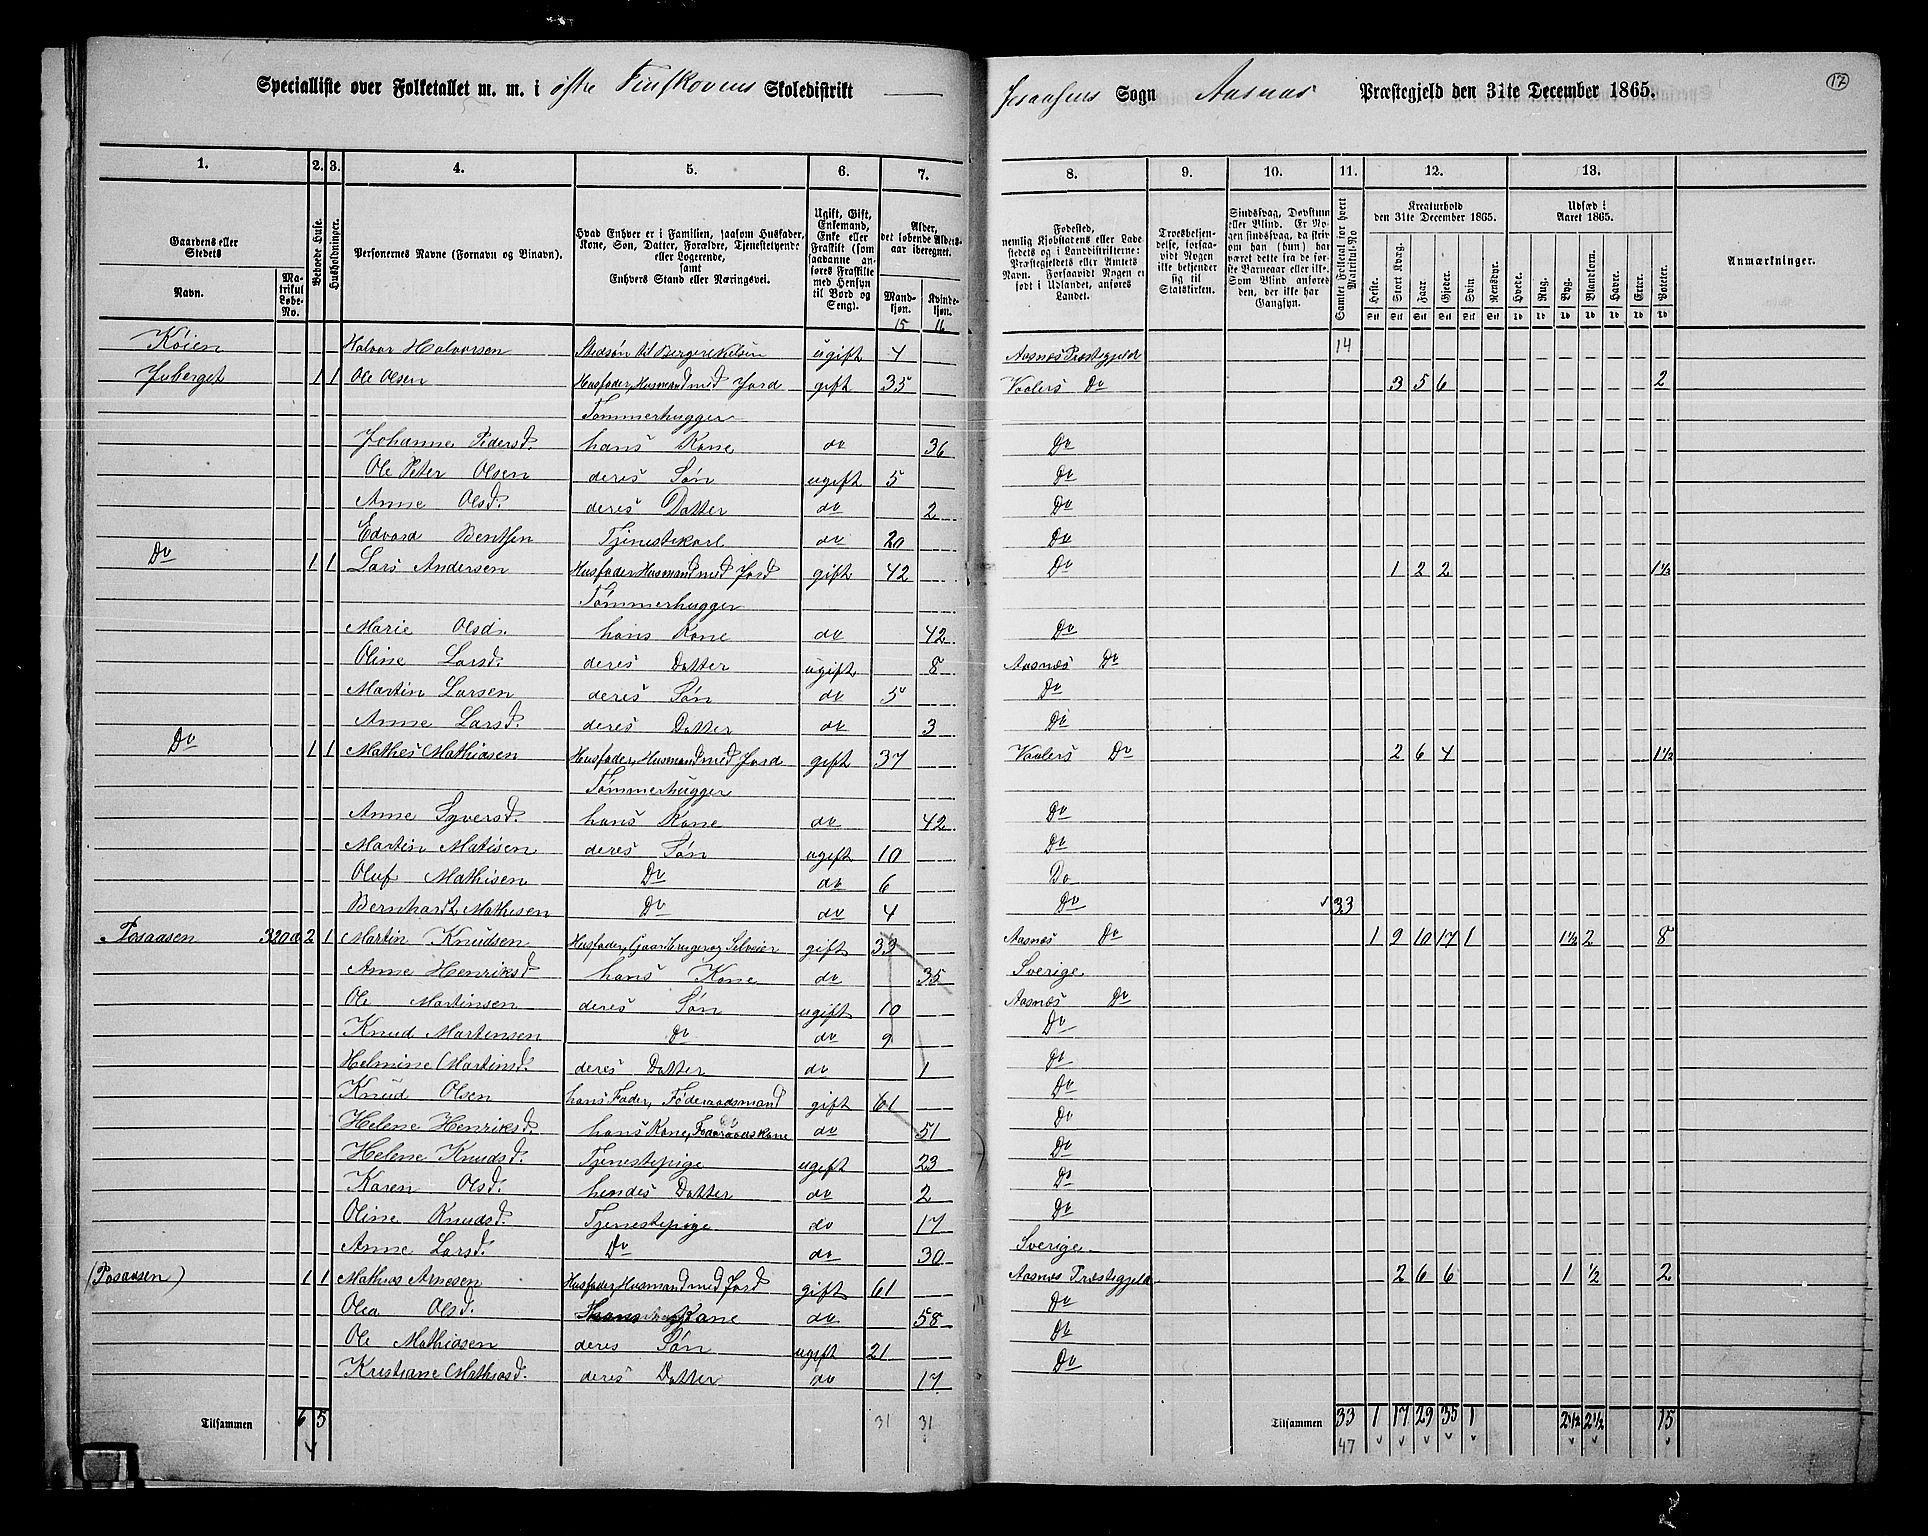 17
Specialliste over Folketallet m. m. i østre Finskovens Skoledistrikt
Sogn Aasnæs Præstegjeld den 31te December 1865.
1. 2. 3. 4. 5. 6. 7. 8. 9. 10. 11. 12. 13.
Gaardens eller Stedets
Navn.
Matrikul Løbe-No.
Beboede Huse.
Husholdninger.
Personernes Navne (Fornavn og Binavn).
Hvad Enhver er i Familien, saasom Husfader, Kone, Søn, Datter, Forældre, Tjenestetyende eller Logerende, samt Enhvers Stand eller Næringsvei.
Ugift, Gift, Enkemand, Enke eller Fraskilt (som saadanne anføres Fraskilte med Hensyn til Bord og Seng).
Alder, det løbende Aldersaar iberegnet.
Mandkjøn.
Kvindekjøn.
Fødested, nemlig Kjøbstadens eller Ladestedets eller i Landdistrikterne: Præstegjeldets eller Amtets Navn. Forsaavidt Nogen er født i Udlandet, anføres Landet.
Troesbekjendelse, forsaavidt Nogen ikke bekjender sig til Statskirken.
Sindssvag, Døvstum eller Blind. Er Nogen sindssvag, da skrives om han (hun) har været dette fra de første Barneaar eller ikke. Som Blind anføres den, der ikke har Gangsyn.
Samlet Folketal for hvert Matrikul-No
Kreaturhold den 31te December 1865.
Heste. Stort Kvæg. Faar. Gjeder. Svin Rensdyr.
Udsæd i Aaret 1865.
Hvede. Rug. Byg. Blandkorn. Havre. Erter. Poteter.
Anmærkninger.
15 16
Køien Halvor Halvorsen Stedsøn til ugift 4 Aasnæs Præstegjeld 14
Juberget 1 1 Ole Olsen Husfader, Husmand med Jord gift 35 Vaalers Do 3 5 6 2
Tømmerhugger
Johanne Pedersd. hans Kone do 36 Do
Ole Peter Olsen deres Søn ugift 5 Do
Anne Olsd. deres Datter do 2 Do
Edvard Bentsen Tjenestekarl do 20 Do
Do 1 1 Lars Andersen Husfader Husmand med Jord gift 42 Do 1 2 2 1½
Tømmerhugger
Marie Olsd. hans Kone do 42 Do
Oline Larsd. deres Datter ugift 8 Aasnæs Do
Martin Larsen deres Søn do 5 Do
Anne Larsd. deres Datter do 3 Do
Do 1 1 Mathes Mathiasen Husfader, Husmand med Jord gift 37 Vaalers Do 2 6 4 1½
Tømmerhugger
Anne Syversd. hans Kone do 42 Do
Martin Matisen deres Søn ugift 10 Do
Oluf Mathisen Do do 6 Do
Bernhardt Mathisen Do do 4 Do 33
Posaasen 320a 2 1 Martin Knudsen Husfader, Gaardbruger og Selveier gift 33 Aasnæs Do 1 9 10 17 1 1½ 2 8
Anne Henriksd hans Kone do 35 Sverige
Ole Martinsen deres Søn ugift 10 Aasnæs Do
Knud Martinsen Do do 9 Do
Helmine Martinsd. deres Datter do 1 Do
Knud Olsen hans Fader, Føderaadsmand gift 61 Do
Helene Henriksd. hans Kone, Føderaadskone do 51 Do
Helene Knudsd. Tjenestepige ugift 23 Do
Karen Olsd. hendes Datter do 2 Do
Oline Knudsd. Tjenestepige do 17 Do
Anne Larsd. Do do 30 Sverige
(Posaasen) 1 1 Mathias Arnesen Husfader, Husmand med Jord gift 61 Aasnæs Præstegjeld 2 6 6 1 ½ 2
Olea Olsd. Kone do 58 Do
Ole Mathiasen deres Søn ugift 21 Do
Kristiane Mathiasd. deres Datter do 17 Do
Tilsammen 6 5 31 31 Tilsammen 33 1 17 29 35 1 2½ 2½ 15
47
2